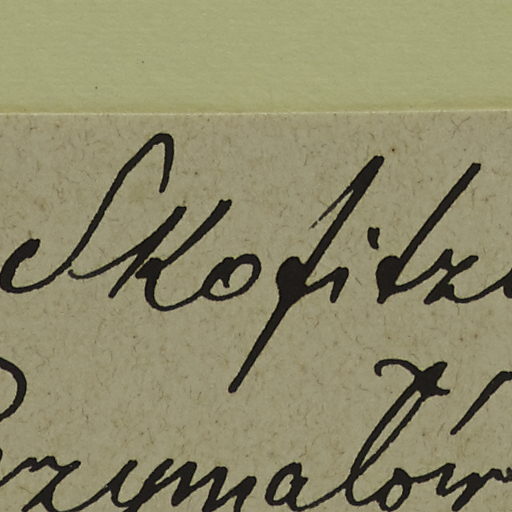 Skofitz
rzymałów